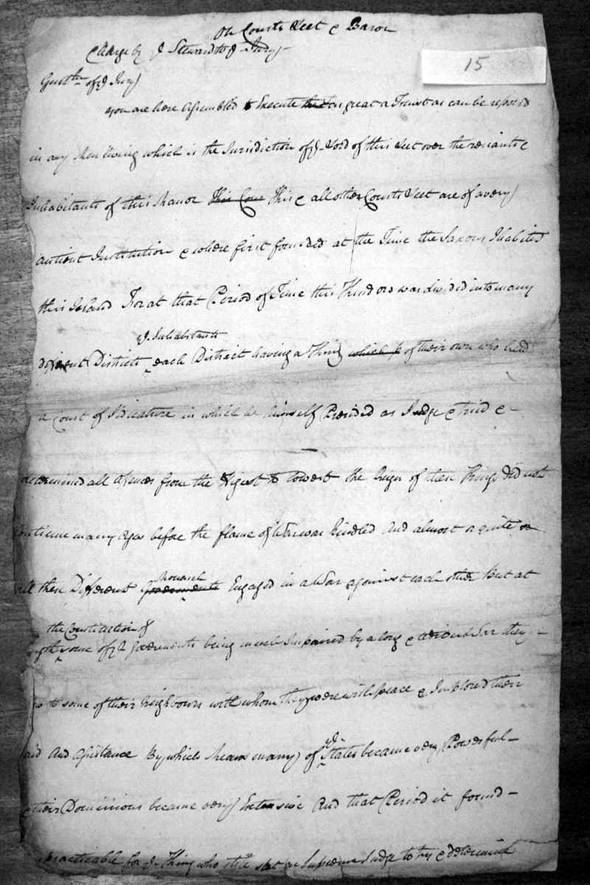 On Courts Leet & Baron
15
Charge by ye Steward to ye Jury
Gentlen of ye Jury
you are here Assembled to Execute as great a Trust as can be reposed
in any Men living which is the Jurisdiction of ye Lord of this Leet over the resiants &
Inhabitants of this Manor This Cour This & all other Courts Leet are of a very
antient Institution & where first founded at the Time the Saxons Inhabited
this Island For at that Period of Time this Kingdom was divided into many
ye Inhabitants
different Districts each District having a King which h of their own who held
a Court of Judicature in which he himself Presided as Judge & tried &
determined all Offences from the Highest to Lowest the Reign of these Kings did not
continue many Ages before the flame of War was kindled And almost
Monarch
all these Different Goverments Engaged in a War against each other But at
the Constitution of
some of ye Goverments being much Impaired by a long & War they
to some of their Neighbours with whom they were with peace & Implored their
ye
aid And Assistance By which means many of States became very Powerful
& their Dominions became very Extensive And that Period it found
practicable for ye King who till sat as Supreme Judge to try & determine